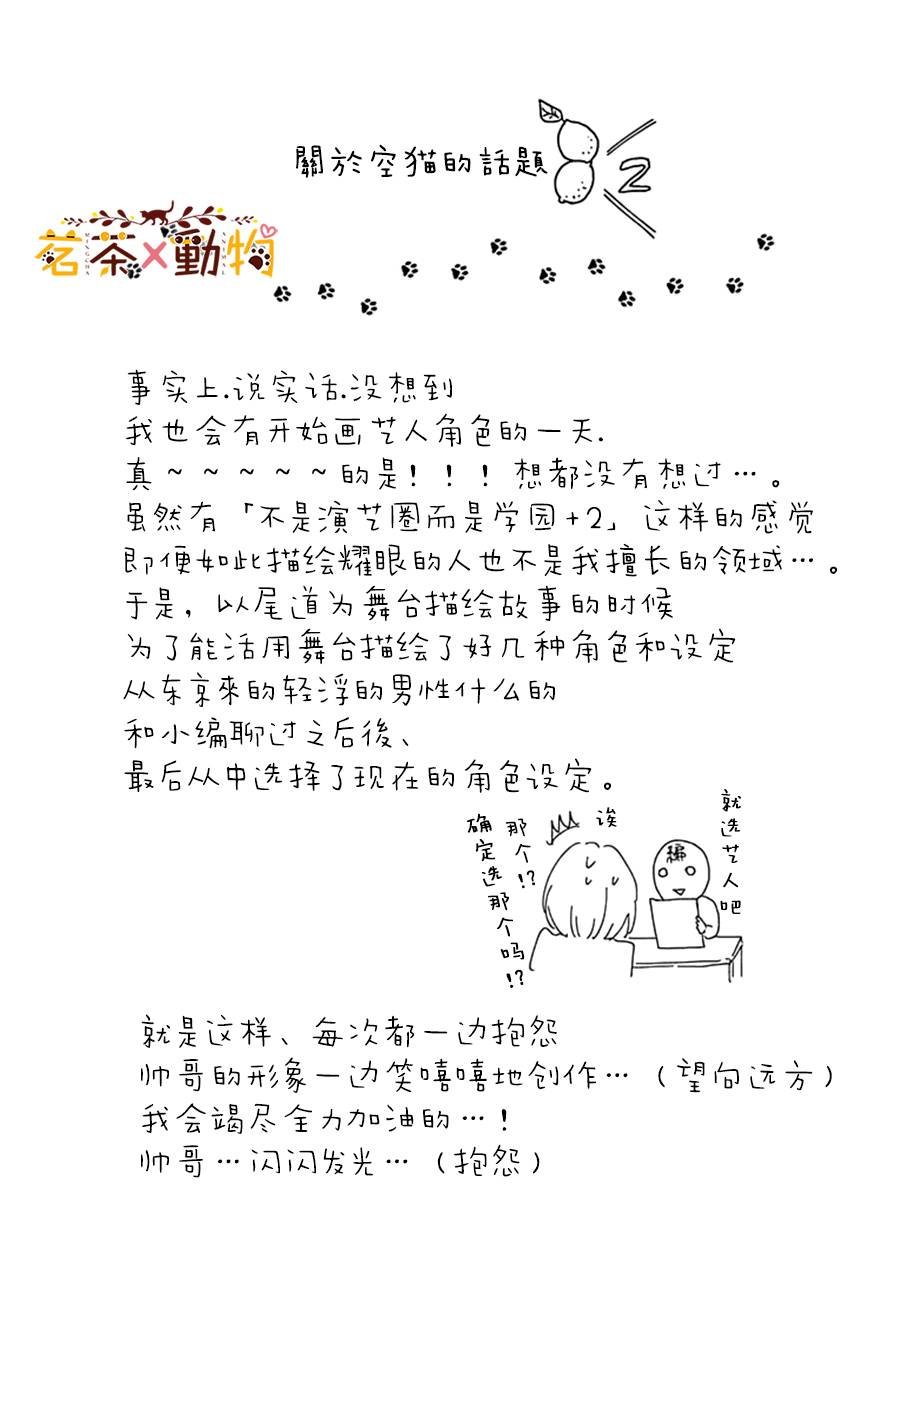 關於空猫的話題
2
茗茶×動物
事实上.说实话.没想到
我也会有开始画艺人角色的一天.
真~~~~~的是！！！想都没有想过…。
虽然有「不是演艺圈而是学园+2」这样的感觉
即便如此描绘耀眼的人也不是我擅长的领域…。
于是，以尾道为舞台描绘故事的时候
为了能活用舞台描绘了好几种角色和设定
从东京來的轻浮的男性什么的
和小编聊过之后後、
最后从中选择了现在的角色设定。
就选艺人吧
编
诶
那个!?
确定选那个吗!?
就是这样、每次都一边抱怨
帅哥的形象一边笑嘻嘻地创作…（望向远方）
我会竭尽全力加油的…！
帅哥…闪闪发光…（抱怨）